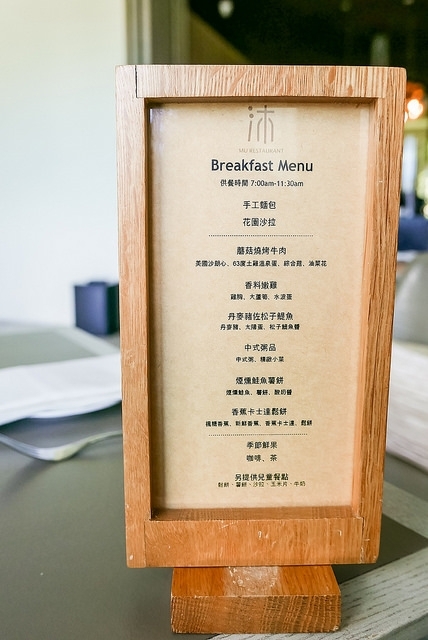 沐
MU RESTAURANT
Breakfast Menu
供餐時間 7:00am-11:30am
手工麵包
花園沙拉
蘑菇燒烤牛肉
美國沙朗心、63度土雞溫泉蛋、綜合菇、油菜花
香料嫩雞
雞胸、大蘆筍、水波蛋
丹麥豬佐松子鯷魚
丹麥豬、太陽蛋、松子鯷魚醬
中式粥品
中式粥、精緻小菜
煙燻鮭魚薯餅
煙燻鮭魚、薯餅、酸奶醬
香蕉卡士達鬆餅
焦糖香蕉、新鮮香蕉、香蕉卡士達、鬆餅
季節鮮果
咖啡、茶
另提供兒童餐點
鬆餅、薯餅、沙拉、玉米片、牛奶